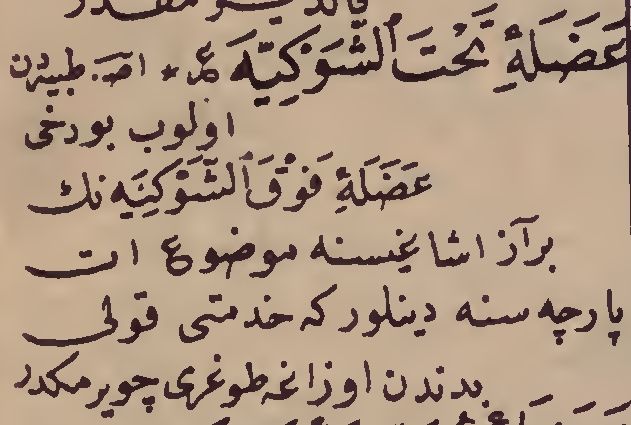 عَضَلَۀِ تَحْتَ ٱلشَّوَكِيَّهَ ع٠ اص٠ طبيدن
اولوب بودخى
عَضَلَۀِ فَوْقَ ٱلشَّوَكِيَه نك
برآز اشاغيسنه موضوع ات
پارچه سنه دينلور كه خدمتى قولى
بدندن اوزاغه طوغرى چويرمكدر